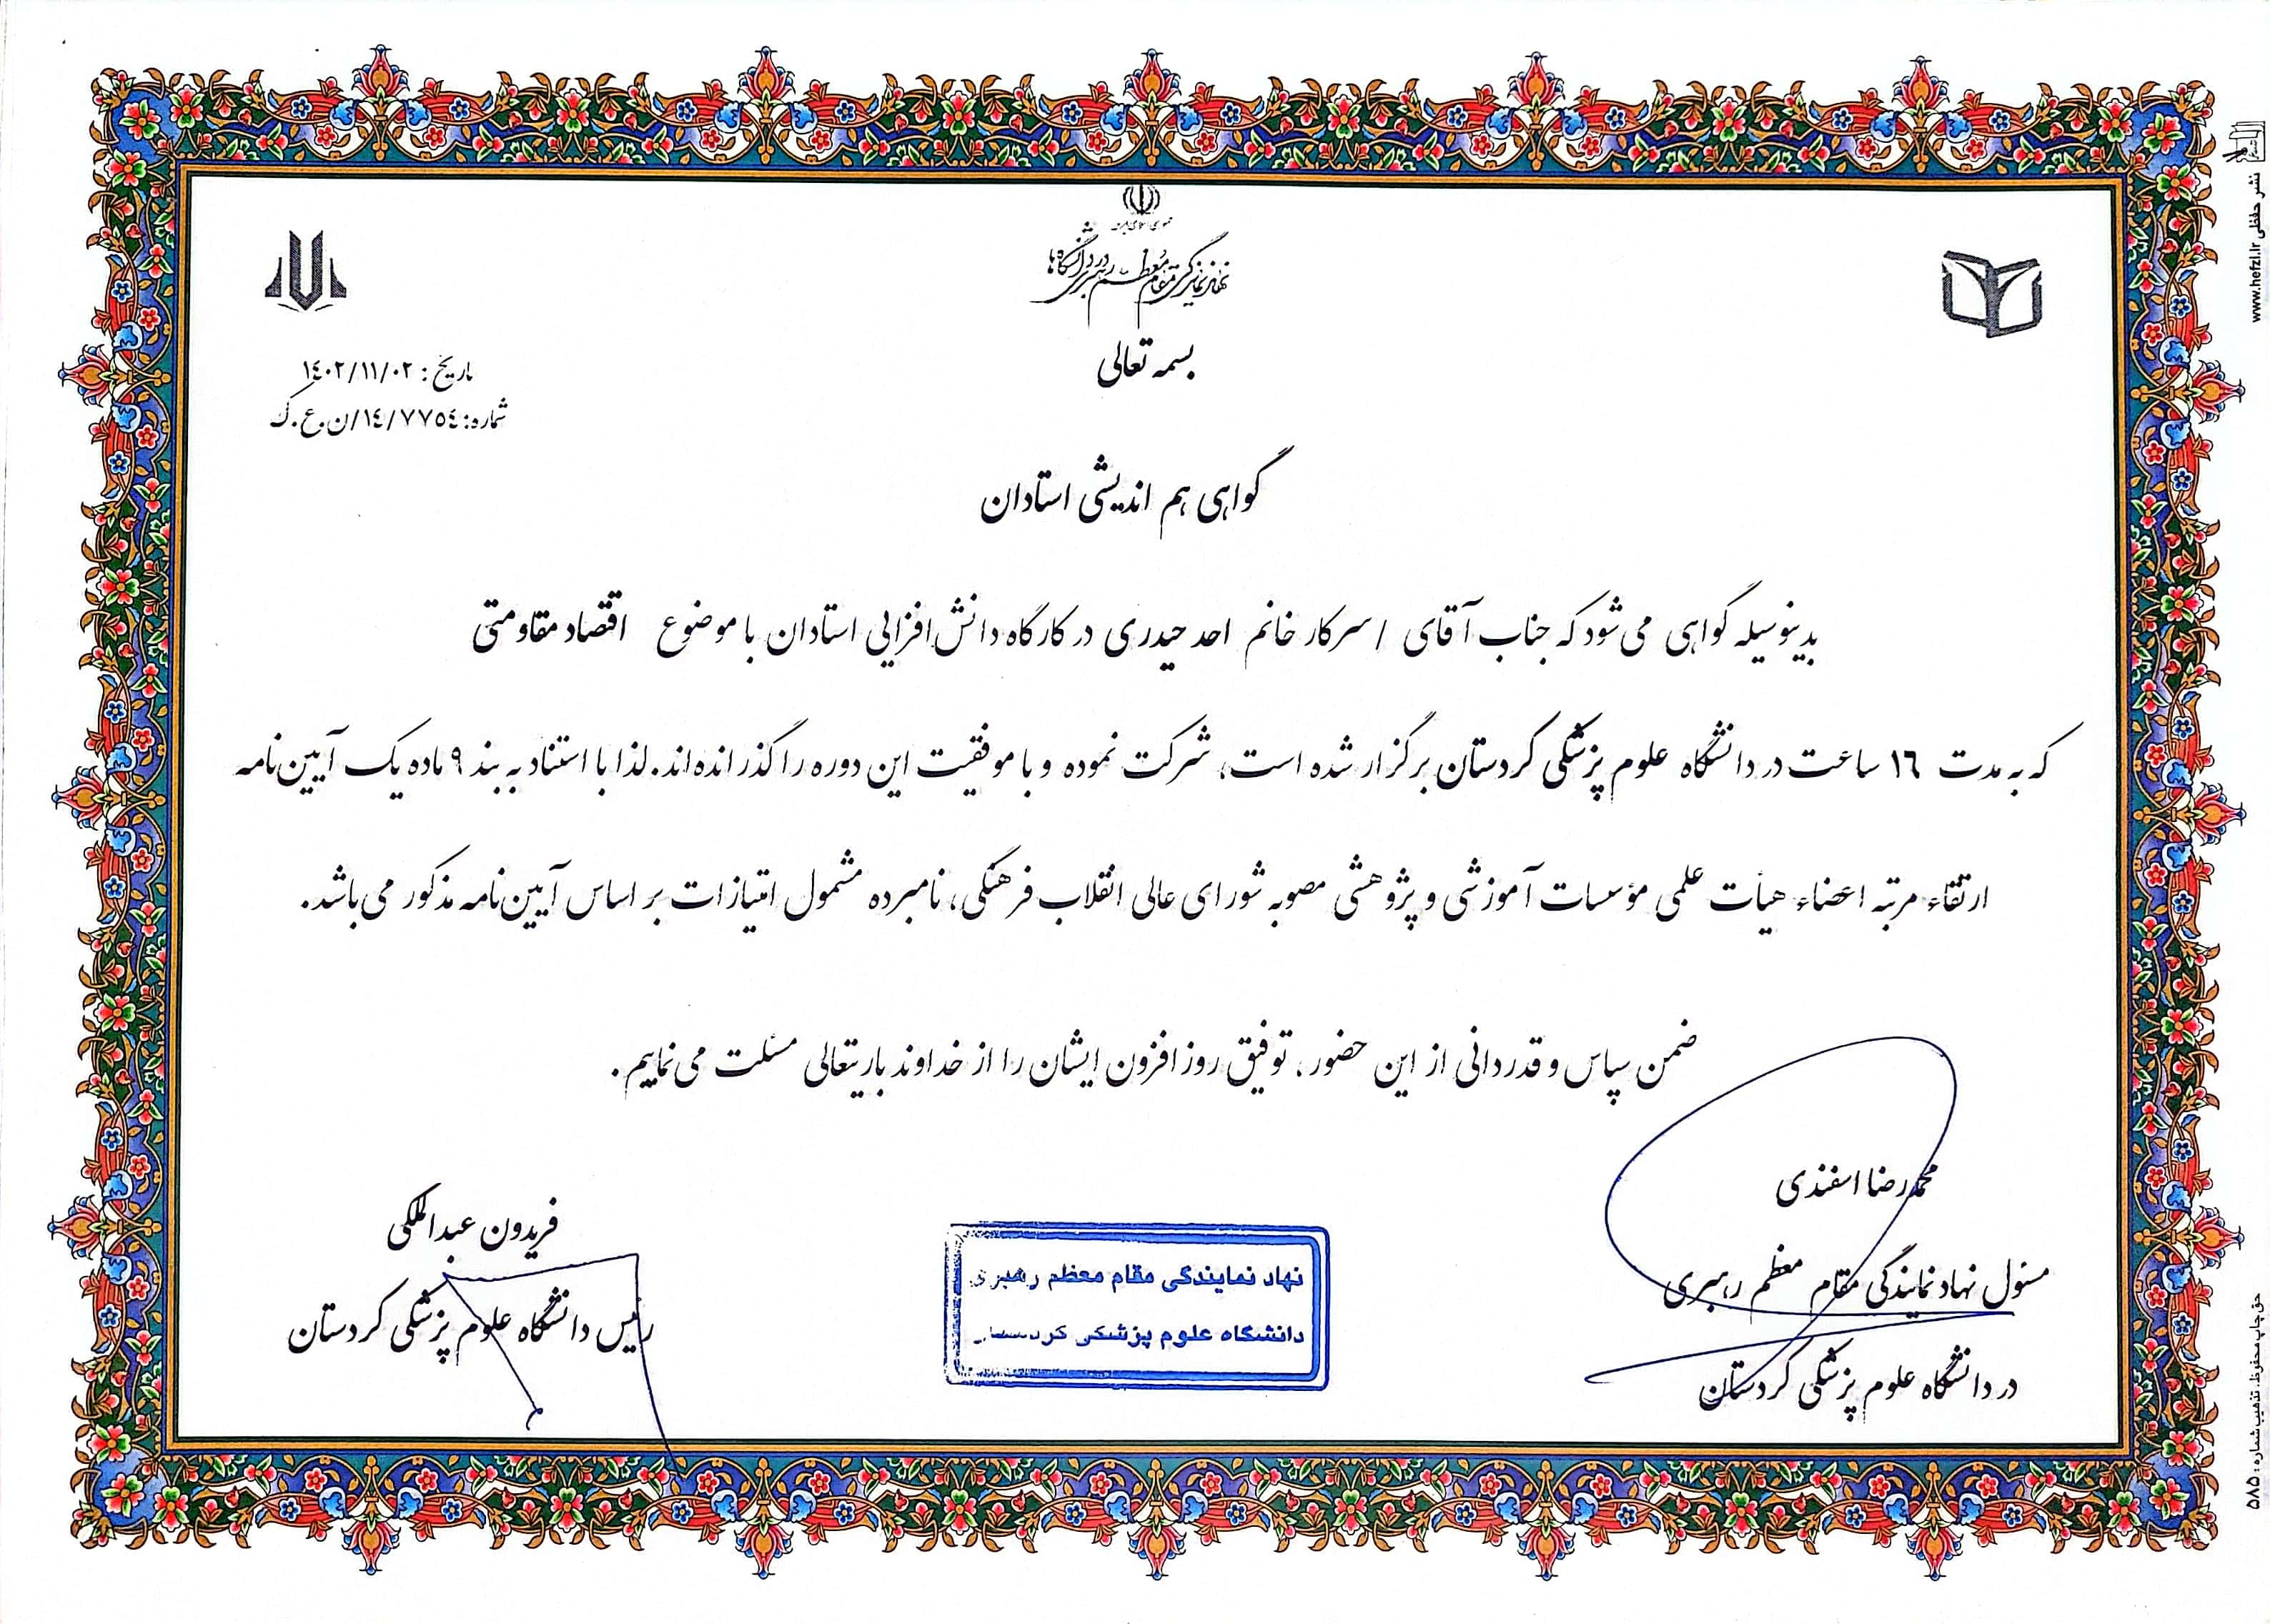 جمهوری اسلامی ایران
نهاد نمایندگی مقام معظم رهبری در دانشگاه‌ها
بسمه تعالی
تاریخ: ۱۴۰۲/۱۱/۰۲
شماره: ۱۴/۷۷۵۴/ن.ع.ک
گواهی هم اندیشی استادان
بدینوسیله گواهی می‌شود که جناب آقای / سرکار خانم احد حیدری در کارگاه دانش‌افزایی استادان با موضوع اقتصاد مقاومتی
که به مدت ۱۶ ساعت در دانشگاه علوم پزشکی کردستان برگزار شده است، شرکت نموده و با موفقیت این دوره را گذرانده‌اند. لذا با استناد به بند ۹ ماده یک آیین‌نامه
ارتقاء مرتبه اعضاء هیأت علمی مؤسسات آموزشی و پژوهشی مصوبه شورای عالی انقلاب فرهنگی، نامبرده مشمول امتیازات بر اساس آیین‌نامه مذکور می‌باشد.
ضمن سپاس و قدردانی از این حضور، توفیق روزافزون ایشان را از خداوند باریتعالی مسئلت می‌نماییم.
محمدرضا اسفندی
مسئول نهاد نمایندگی مقام معظم رهبری
در دانشگاه علوم پزشکی کردستان
نهاد نمایندگی مقام معظم رهبری
دانشگاه علوم پزشکی کردستان
فریدون عبدالملکی
رئیس دانشگاه علوم پزشکی کردستان
نشر حفظی www.hefzi.ir
حق چاپ محفوظ. تذهیب شماره: ۵۸۵